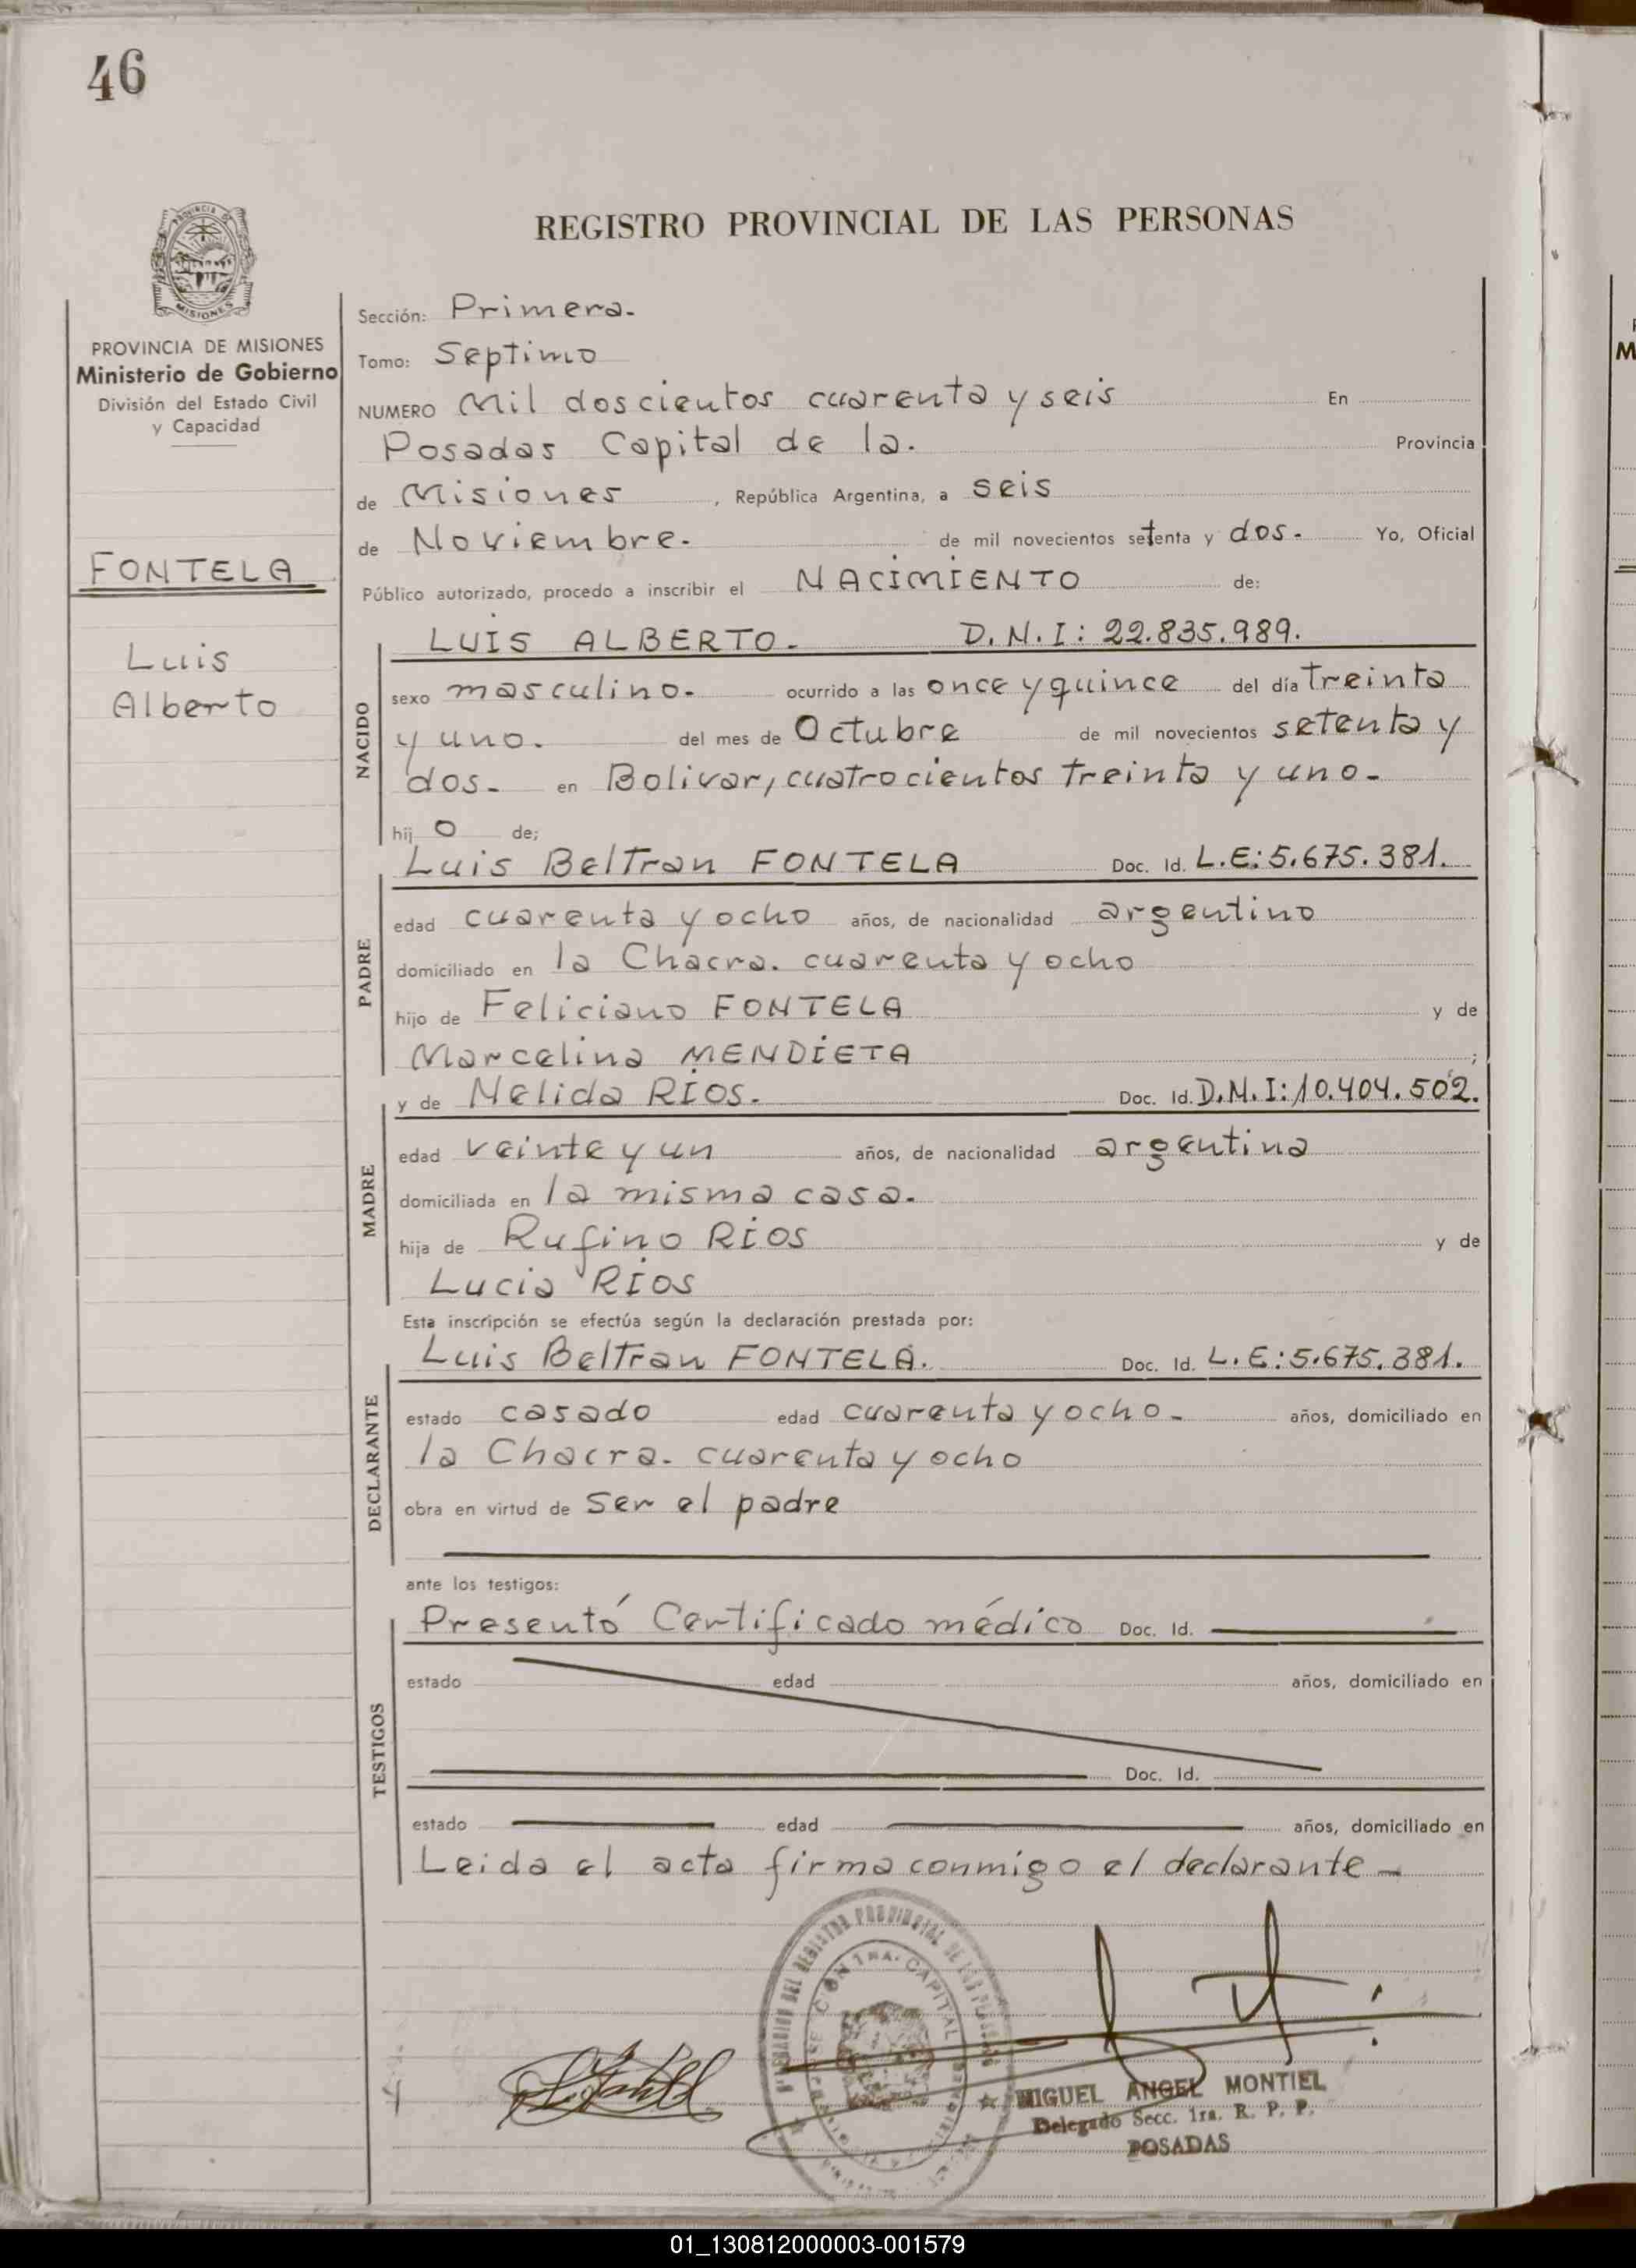 46
REGISTRO PROVINCIAL DE LAS PERSONAS
PROVINCIA DE MISIONES
Ministerio de Gobierno
División del Estado Civil
y Capacidad
FONTELA
Luis
Alberto
Sección: Primera.
Tomo: Septimo
NUMERO Mil doscientos cuarenta y seis En
Posadas Capital de la. Provincia
de Misiones, República Argentina, a seis
de Noviembre. de mil novecientos setenta y dos. Yo, Oficial
Público autorizado, procedo a inscribir el NACIMIENTO de:
NACIDO
LUIS ALBERTO. D.N.I: 22.835.989.
sexo masculino. ocurrido a las once y quince del día treinta
y uno. del mes de Octubre de mil novecientos setenta y
dos. en Bolivar, cuatrocientos treinta y uno.
hij o de;
PADRE
Luis Beltran FONTELA Doc. Id. L.E: 5.675.381.
edad cuarenta y ocho años, de nacionalidad argentino
domiciliado en la Chacra. cuarenta y ocho
hijo de Feliciano FONTELA y de
Marcelina MENDIETA ;
MADRE
y de Nelida RIOS. Doc. Id. D.N.I: 10.404.502.
edad veinte y un años, de nacionalidad argentina
domiciliada en la misma casa.
hija de Rufino RIOS y de
Lucia RIOS
Esta inscripción se efectúa según la declaración prestada por:
DECLARANTE
Luis Beltran FONTELA. Doc. Id. L.E: 5.675.381.
estado casado edad cuarenta y ocho. años, domiciliado en
la Chacra. cuarenta y ocho
obra en virtud de ser el padre
ante los testigos:
TESTIGOS
Presentó Certificado médico Doc. Id.
estado edad años, domiciliado en
Doc. Id.
estado edad años, domiciliado en
Leida el acta firma conmigo el declarante
MIGUEL ANGEL MONTIEL
Delegado Secc. 1ra. R. P. P.
POSADAS
01_130812000003-001579